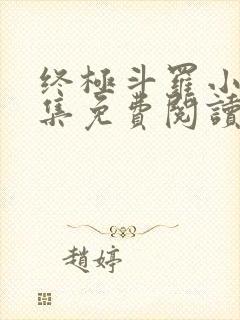 终極斗羅小
集免費閱讀
趙婷